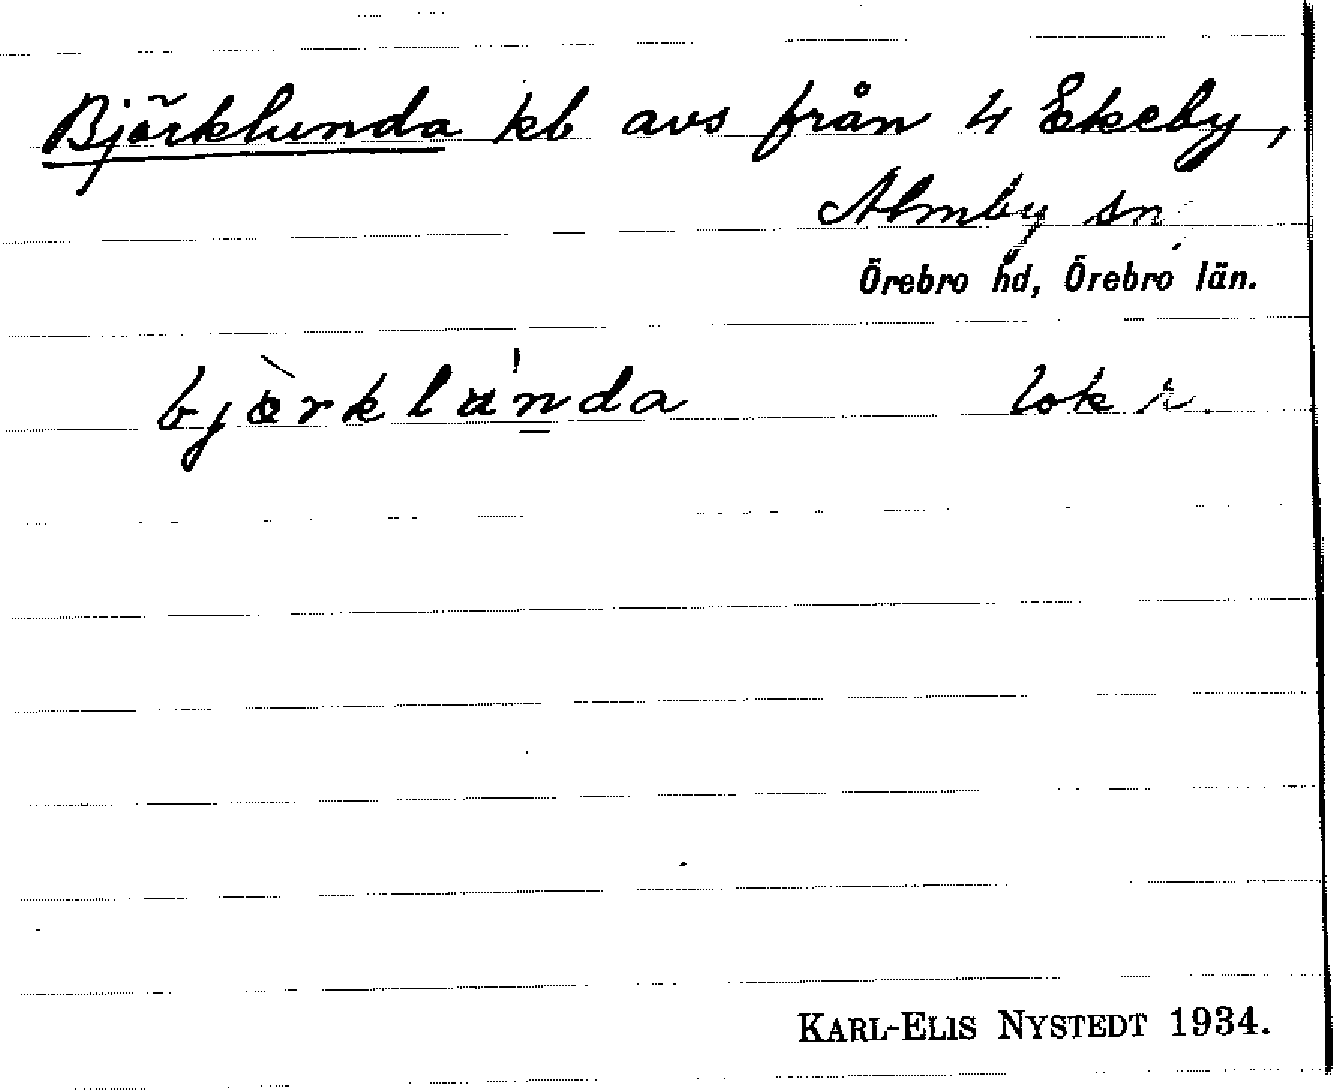 Björklunda kb avs från 4 Ekeby,
Almby sn
Örebro hd, Örebro län.
bjòrklu'nda lok r.
KARL-ELIS NYSTEDT 1934.